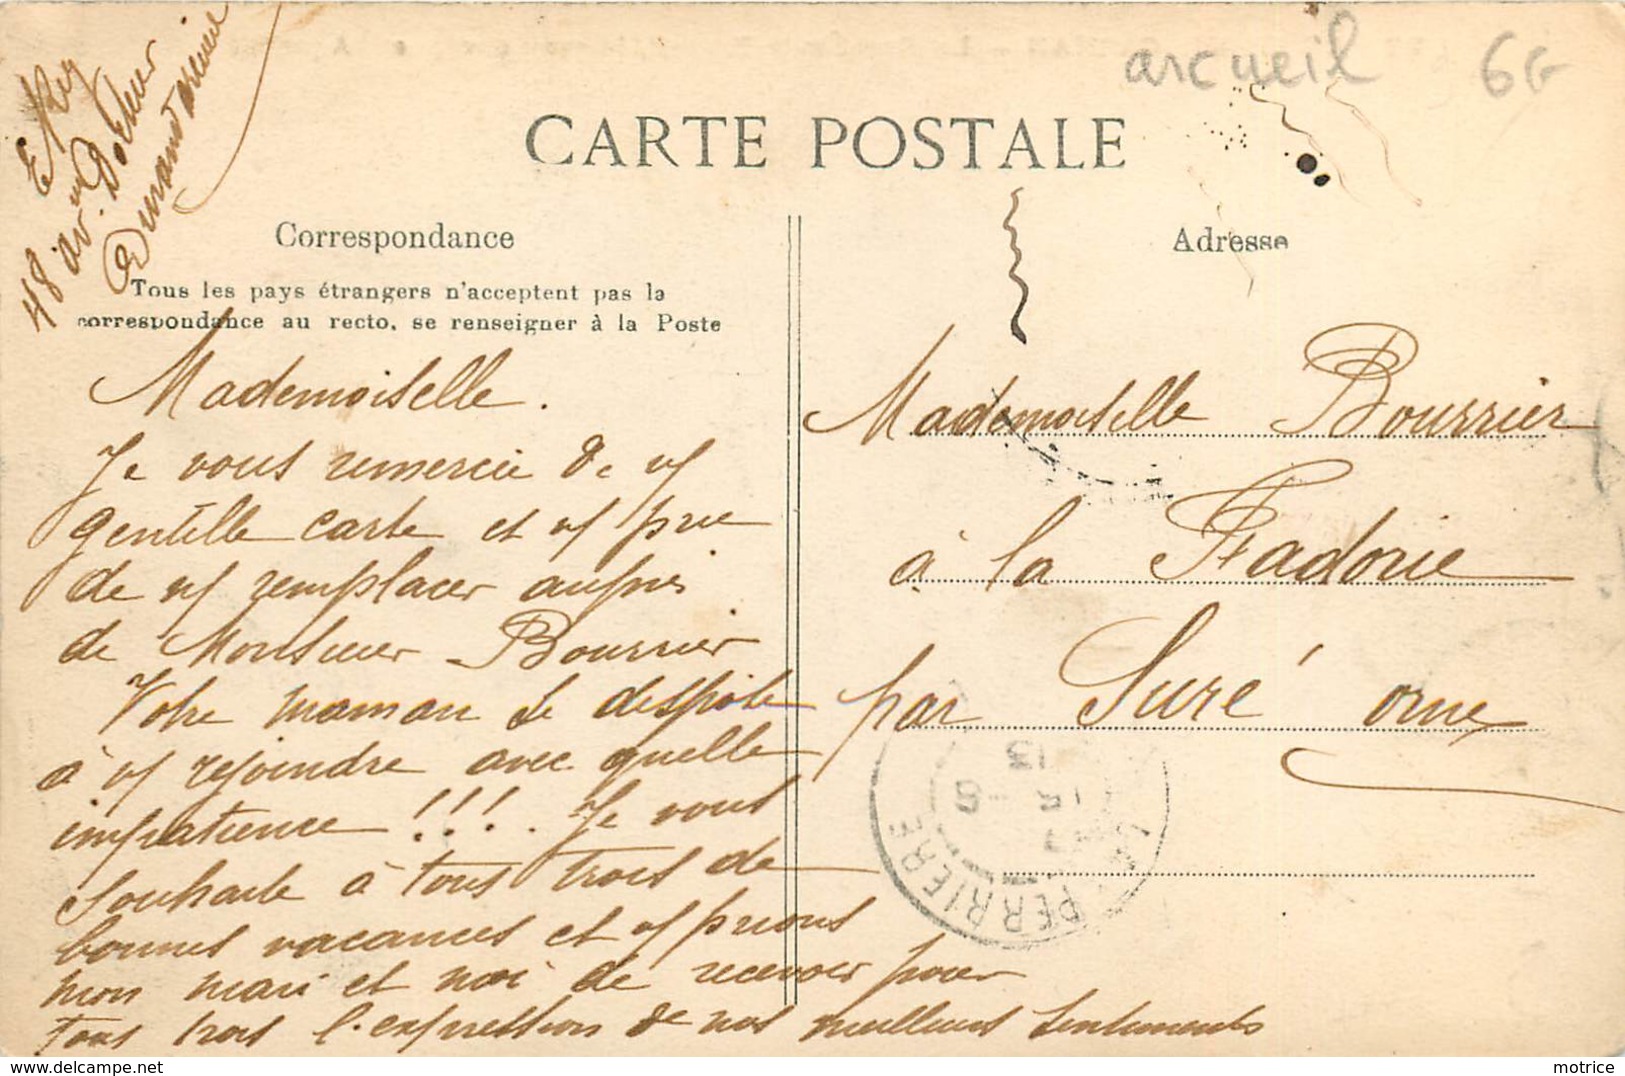 arcueil 6G
CARTE POSTALE
Correspondance
Tous les pays étrangers n'acceptent pas la
correspondance au recto, se renseigner à la Poste
E Rey
48 av. Docteur
Durand arcueil
Mademoiselle.
Je vous remercie de vs
gentille carte et vs prie
de vs remplacer auprès
de Monsieur Bourrier
Votre maman se despite
à vs rejoindre avec quelle
impatience !!!. Je vous
souhaite à tous trois de
bonnes vacances et vs prions
mon mari et moi de recevoir pour
tous trois l'expression de nos meilleurs sentiments
Adresse
Mademoiselle Bourrier
à la Fadorie
par Suré orne
PERRIERE
13
motrice